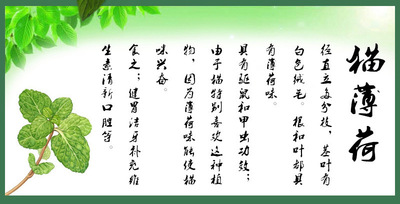 猫薄荷
径直立多分枝，茎叶有
白色绒毛。根和叶都具
有薄荷味。
具有驱鼠和甲虫功效；
由于猫特别喜欢这种植
物，因为薄荷味能使猫
味兴奋。
食之；健胃洁身补充维
生素清新口腔等。